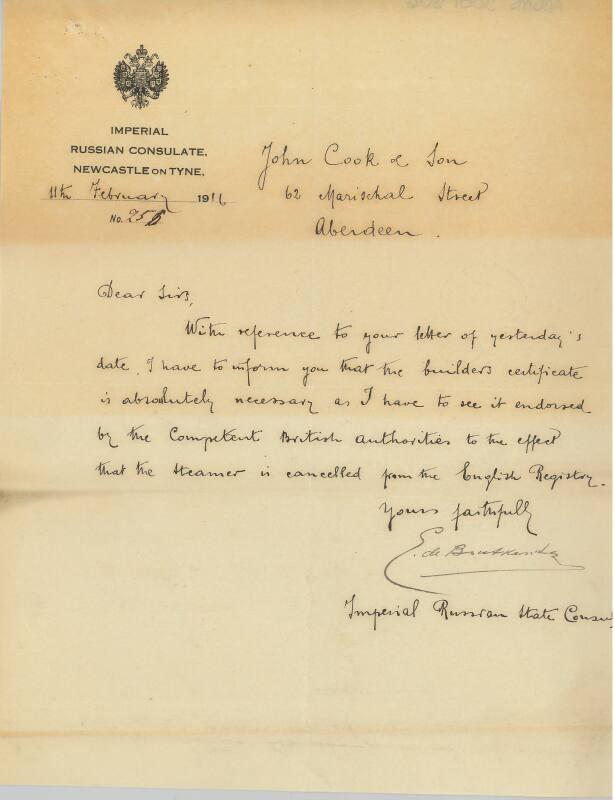 IMPERIAL
RUSSIAN CONSULATE,
NEWCASTLE ON TYNE,
11th February 1916
No. 256
John Cook & Son
62 Marischal Street
Aberdeen.
Dear Sirs,
With reference to your letter of yesterday's
date, I have to inform you that the builders certificate
is absolutely necessary as I have to see it endorsed
by the Competent British authorities to the effect
that the Steamer is cancelled from the English Registry.
Yours faithfully
E. de
Imperial Russian State Consu